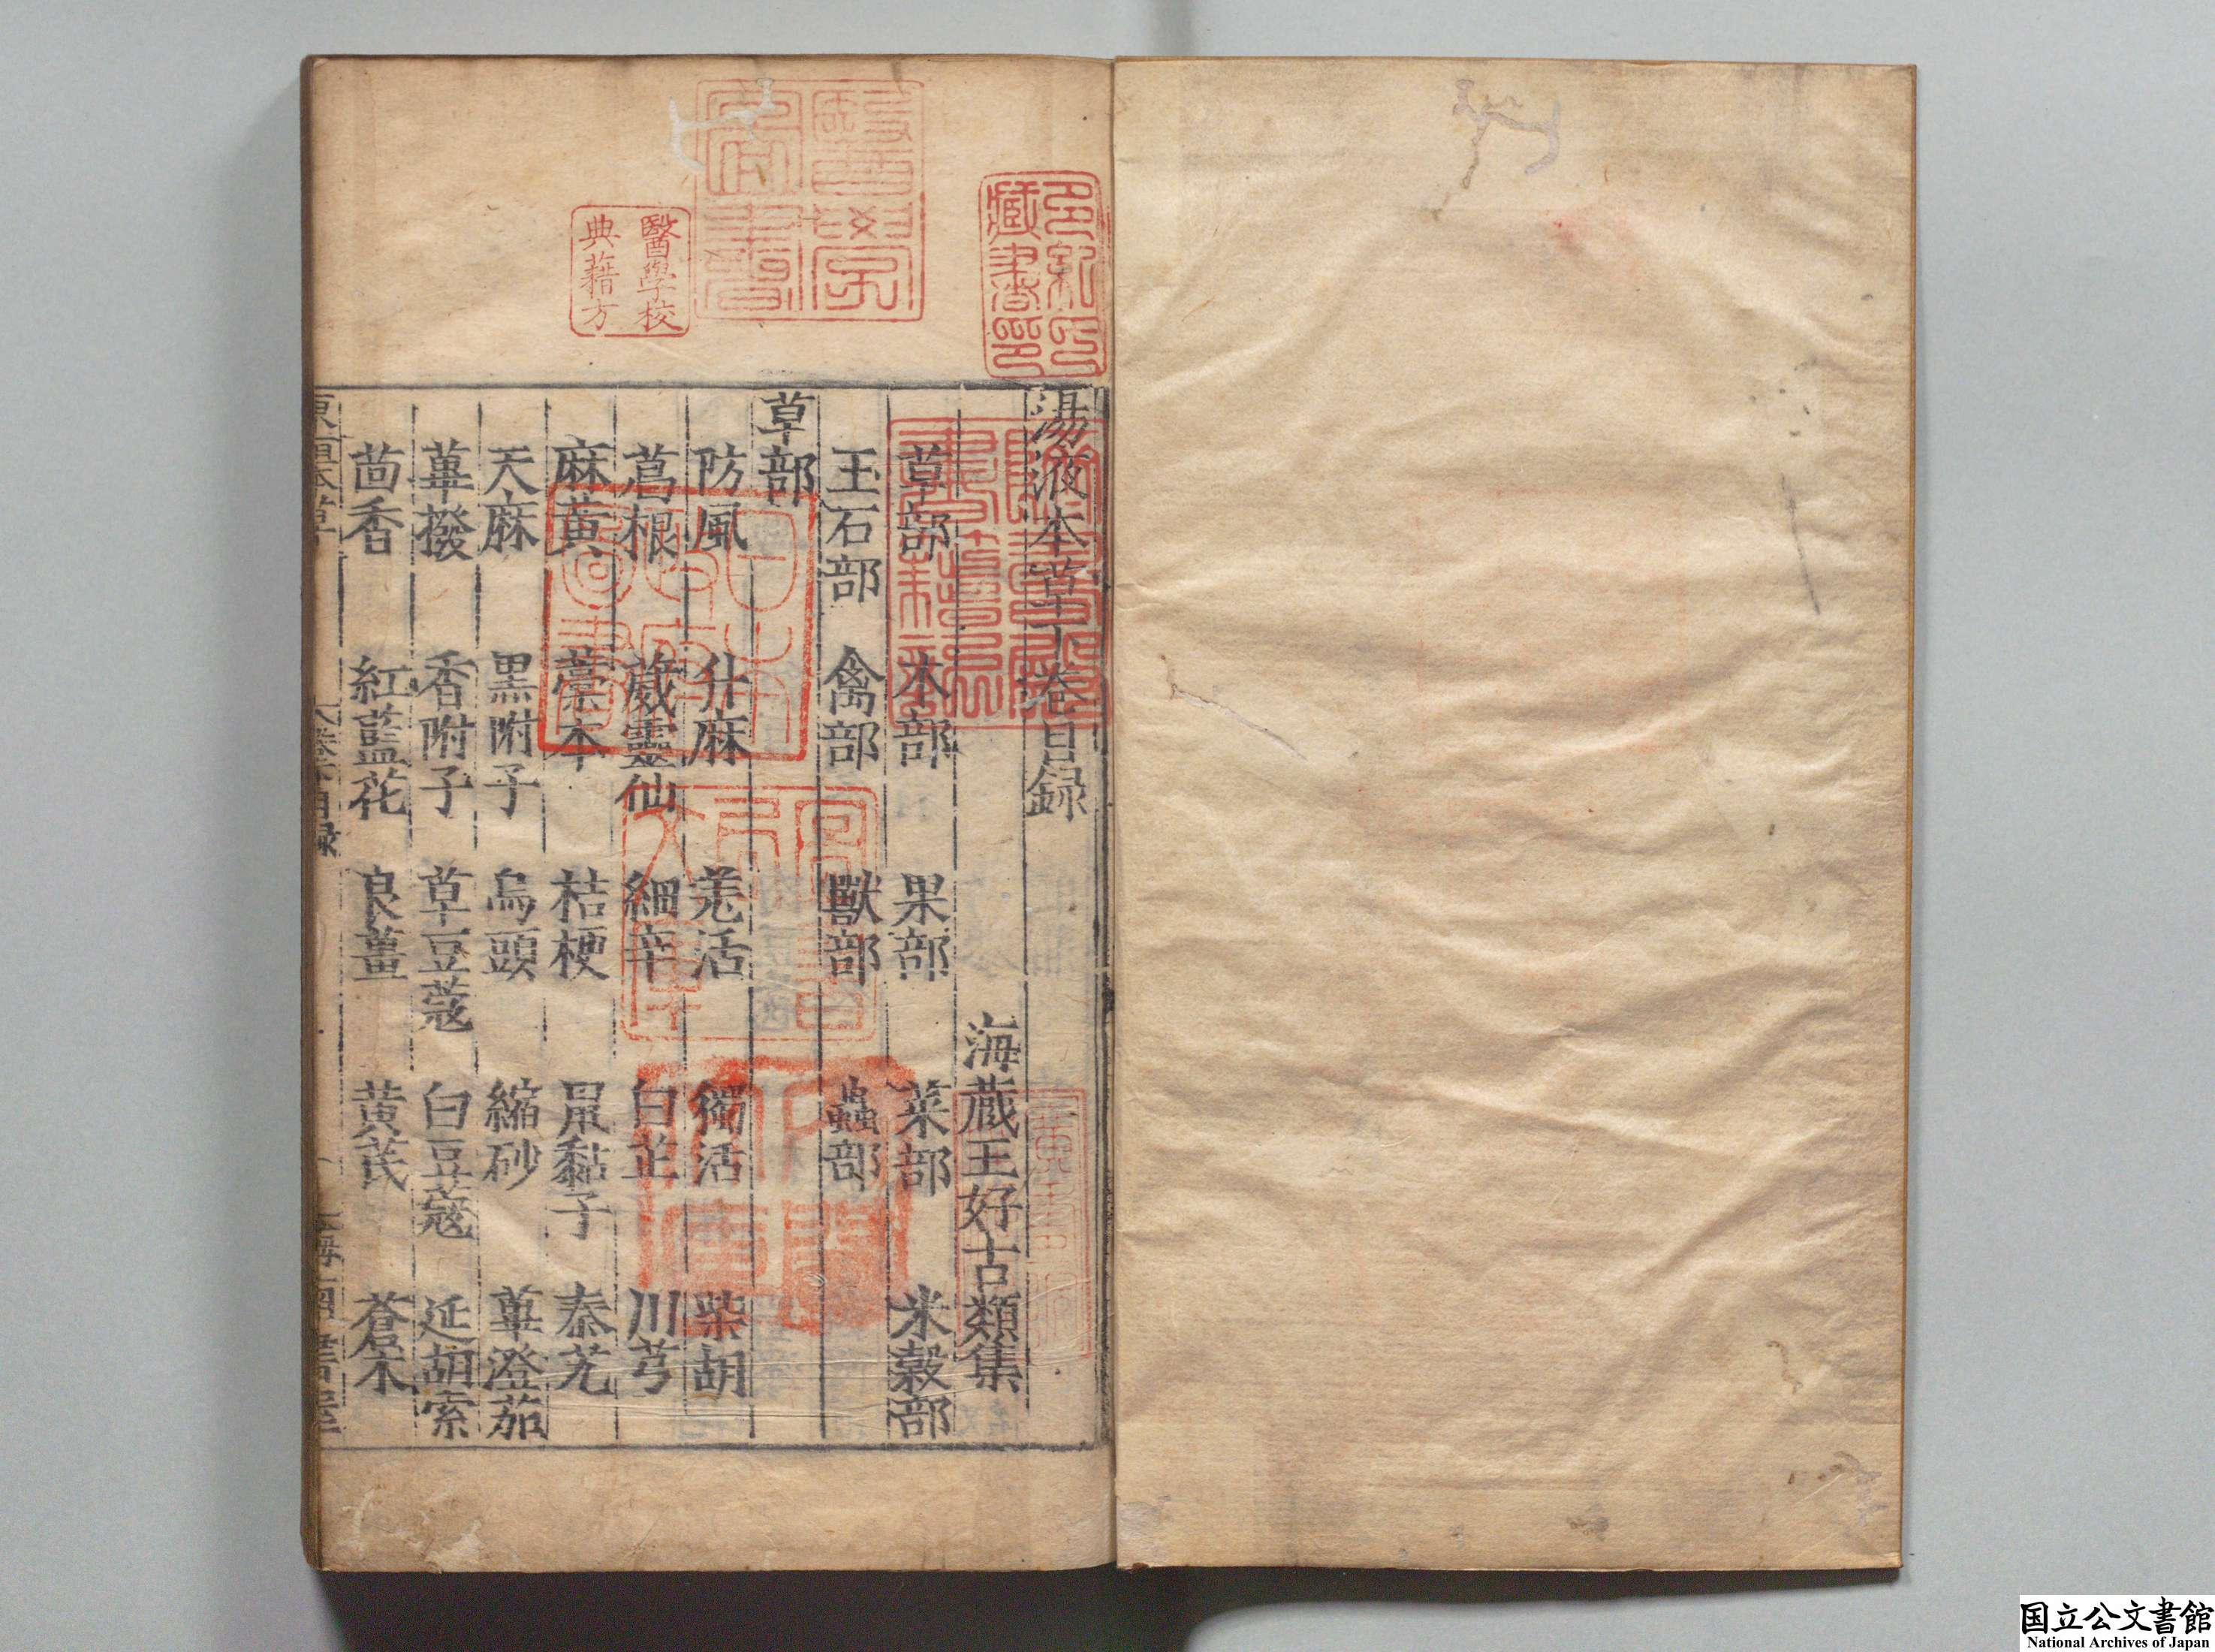 湯液本草下卷目録
海藏王好古類集
草部 木部 果部 菜部 米穀部
玉石部 禽部 獸部 蟲部
草部
防風 升麻 羌活 獨活 柴胡
葛根 葳靈仙 細辛 白芷 川芎
麻黄 藁本 桔梗 鼠黏子 秦艽
天麻 黒附子 烏頭 縮砂 蓽澄茄
蓽撥 香附子 草豆蔻 白豆蔻 延胡索
茴香 紅藍花 良薑 黄芪 蒼朮
醫學校
典藉方
多紀氏
藏書印
醫學
圖書
国立公文書館
National Archives of Japan